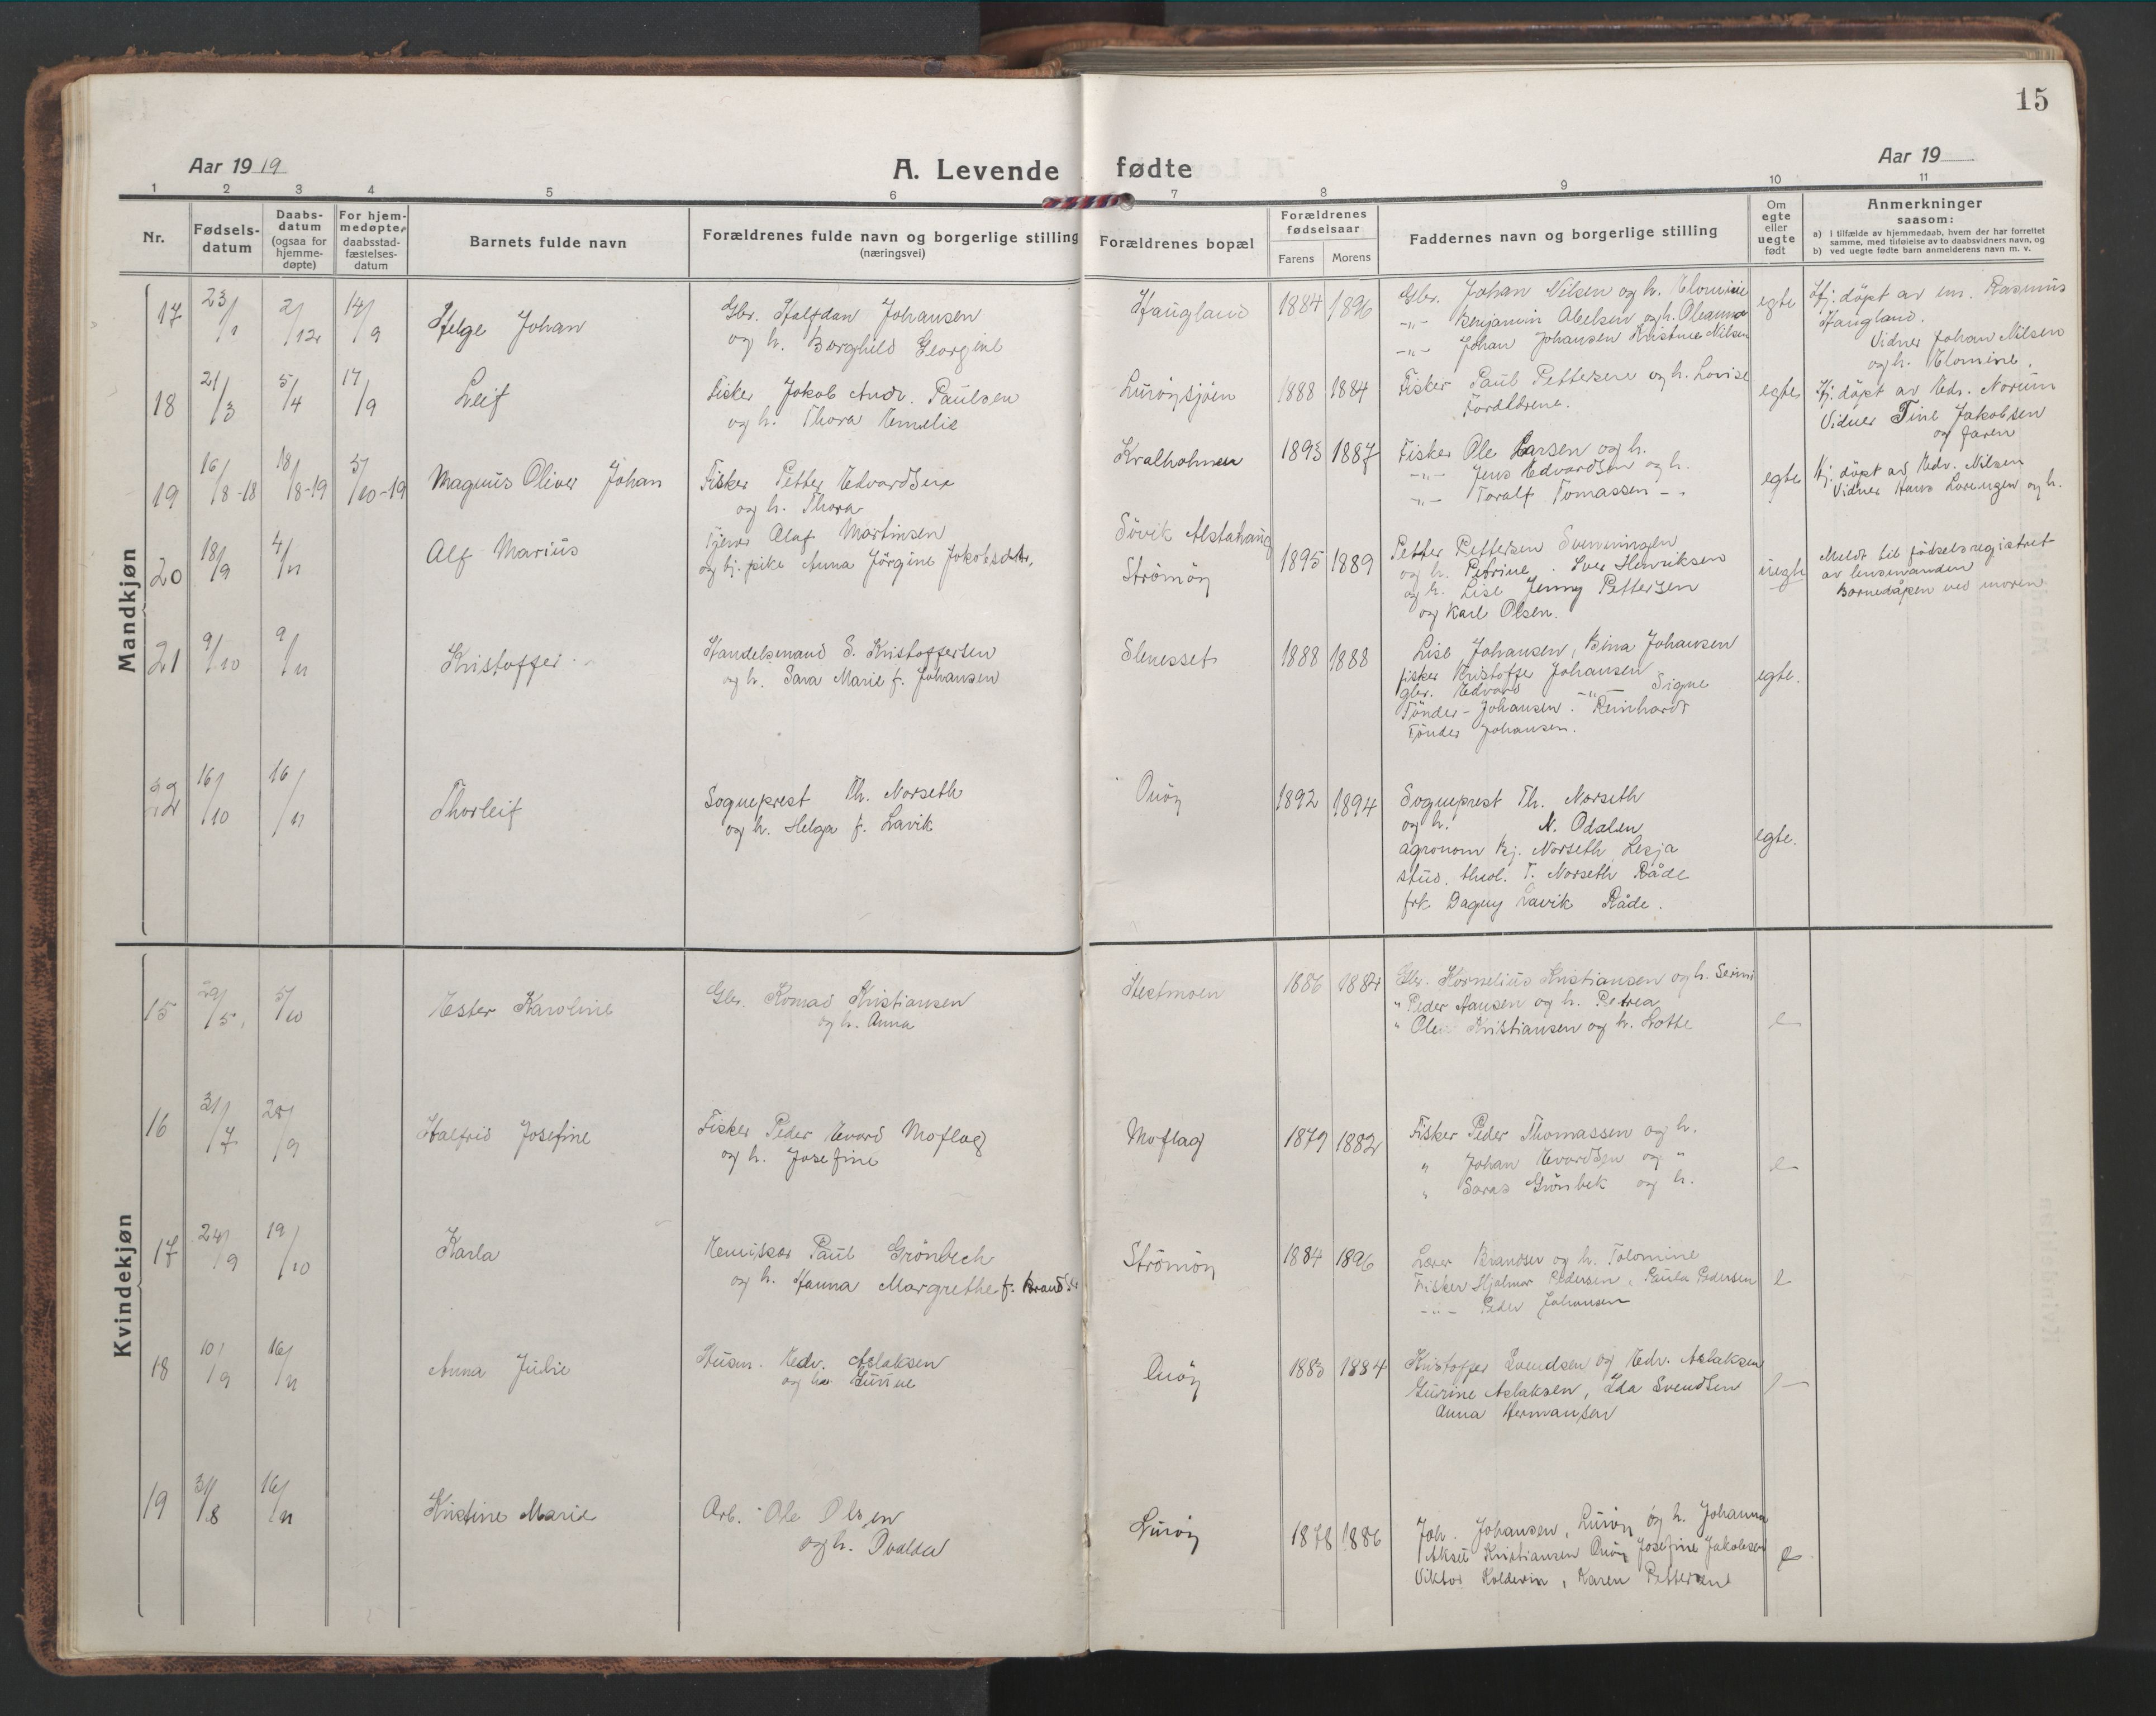 15
Aar 1919
A. Levende fødte
Aar 19
1 2 3 4 5 6 7 8 9 10 11
Nr.
Fødsels-
datum
Daabs-
datum
(ogsaa for
hjemme-
døpte)
For hjem-
medøpte,
daabsstad-
fæstelses-
datum
Barnets fulde navn
Forældrenes fulde navn og borgerlige stilling
(næringsvei)
Forældrenes bopæl
Forældrenes
fødselsaar
Farens Morens
Faddernes navn og borgerlige stilling
Om
egte
eller
uegte
født
Anmerkninger
saasom:
a) i tilfælde av hjemmedaab, hvem der har forrettet
samme, med tilføielse av to daabsvidners navn, og
b) ved uegte fødte barn anmelderens navn m. v.
Mandkjøn
17 23/1 2/12 14/9 Helge Johan
Gbr. Halfdan Johansen
og h. Borghild Georgine
Haugland 1884 1896
Gbr. Johan Nilsen og h. Elomine
-"- Benjamin Abelsen og h. Oleanna
-"- Johan Johansen Kristine Nilsen
egte
Hj. döpt av em. Rasmus
Haugland.
Vidner Johan Nilsen
og h. Elomine.
18 21/3 5/4 17/9 Leif
Fisker Jakob Andr. Paulsen
og h. Thora Emelie
Luröysjöen 1888 1884
Fisker Paul Pettersen og h. Lovise
Forældrene.
egte
Hj. döpt av Edv. Norum
Vidner Tine Jakobsen
og faren
19 16/8-18 18/8-19 5/10-19 Magnus Oliver Johan
Fisker Petter Edvardsen
og h. Thora
Kvalholmen 1893 1887
Fisker Ole Larsen og h.
-"- Jens Edvardsen og h.
-"- Toralf Tomassen -"-
egte
Hj. döpt av Edv. Nilsen
Vidner Hans Lorentzen og h.
20 18/9 4/11 Alf Marius
Tjener Olaf Martinsen
og tj. pike Anna Jörgine Jakobsdtr.
Sövik Alstahaug
Strömöy
1895 1889
Petter Pettersen Svenningen
og h. Petrine. Iver Henriksen
og h. Lise Jenny Pettersen
og Karl Olsen.
uegte
Meldt til födselsregistret
av lensmanden
Barnedåpen ved moren
21 9/10 9/11 Kristoffer
Handelsmand S. Kristoffersen
og h. Sara Marie f. Johansen
Slenesset 1888 1888
Lise Johansen, Bina Johansen
fisker Kristoffer Johansen
gbr. Edvard -"- Signe
Tönder-Johansen. Reinhardt
Tönder Johansen.
egte.
22 16/10 16/11 Thorleif
Sogneprest Th. Norseth
og h. Helga f. Lavik
Onöy 1892 1894
Sogneprest Th. Norseth
og h. N. Odalen
agronom Kj. Norseth, Lesja
stud. theol. T. Norseth Råde
frk Dagny Lavik Råde.
egte.
Kvindekjøn
15 29/5 5/10 Ester Karoline
Gbr. Konrad Kristiansen
og h. Anna
Hestmoen 1886 1884
Gbr. Kornelius Kristiansen og h. Serine
" Peder Hansen og h. Petrea
" Ole Kristiansen og h. Lotte
e
16 31/7 28/9 Halfrid Josefine
Fisker Peder Evard Moflag
og h. Josefine
Moflag 1879 1882
Fisker Peder Thomassen og h.
" Johan Evardsen og "
" Saras Grönbek og h.
e
17 24/9 19/10 Karla
Emisser Paul Grönbech
og h. Hanna Margrethe f. Brandser
Strömöy 1884 1896
Lærer Brandser og h. Tolomine
Fisker Hjalmar Pedersen, Paula Pedersen
-"- Peder Johansen
e
18 10/9 16/11 Anna Julie
Husm. Edv. Aslaksen
og h. Gurine
Onöy 1883 1884
Kristoffer Svendsen og Edv. Aslaksen
Gurine Aslaksen, Ida Svendsen
Anna Hermansen
e
19 31/8 16/11 Kristine Marie
Arb. Ole Olsen
og h. Ovalda
Luröy 1878 1886
Joh. Johansen, Luröy og h. Johanna
Aksel Kristiansen Onöy Josefine Jakobsen
Viktor Kolderin, Karen Pettersen
e